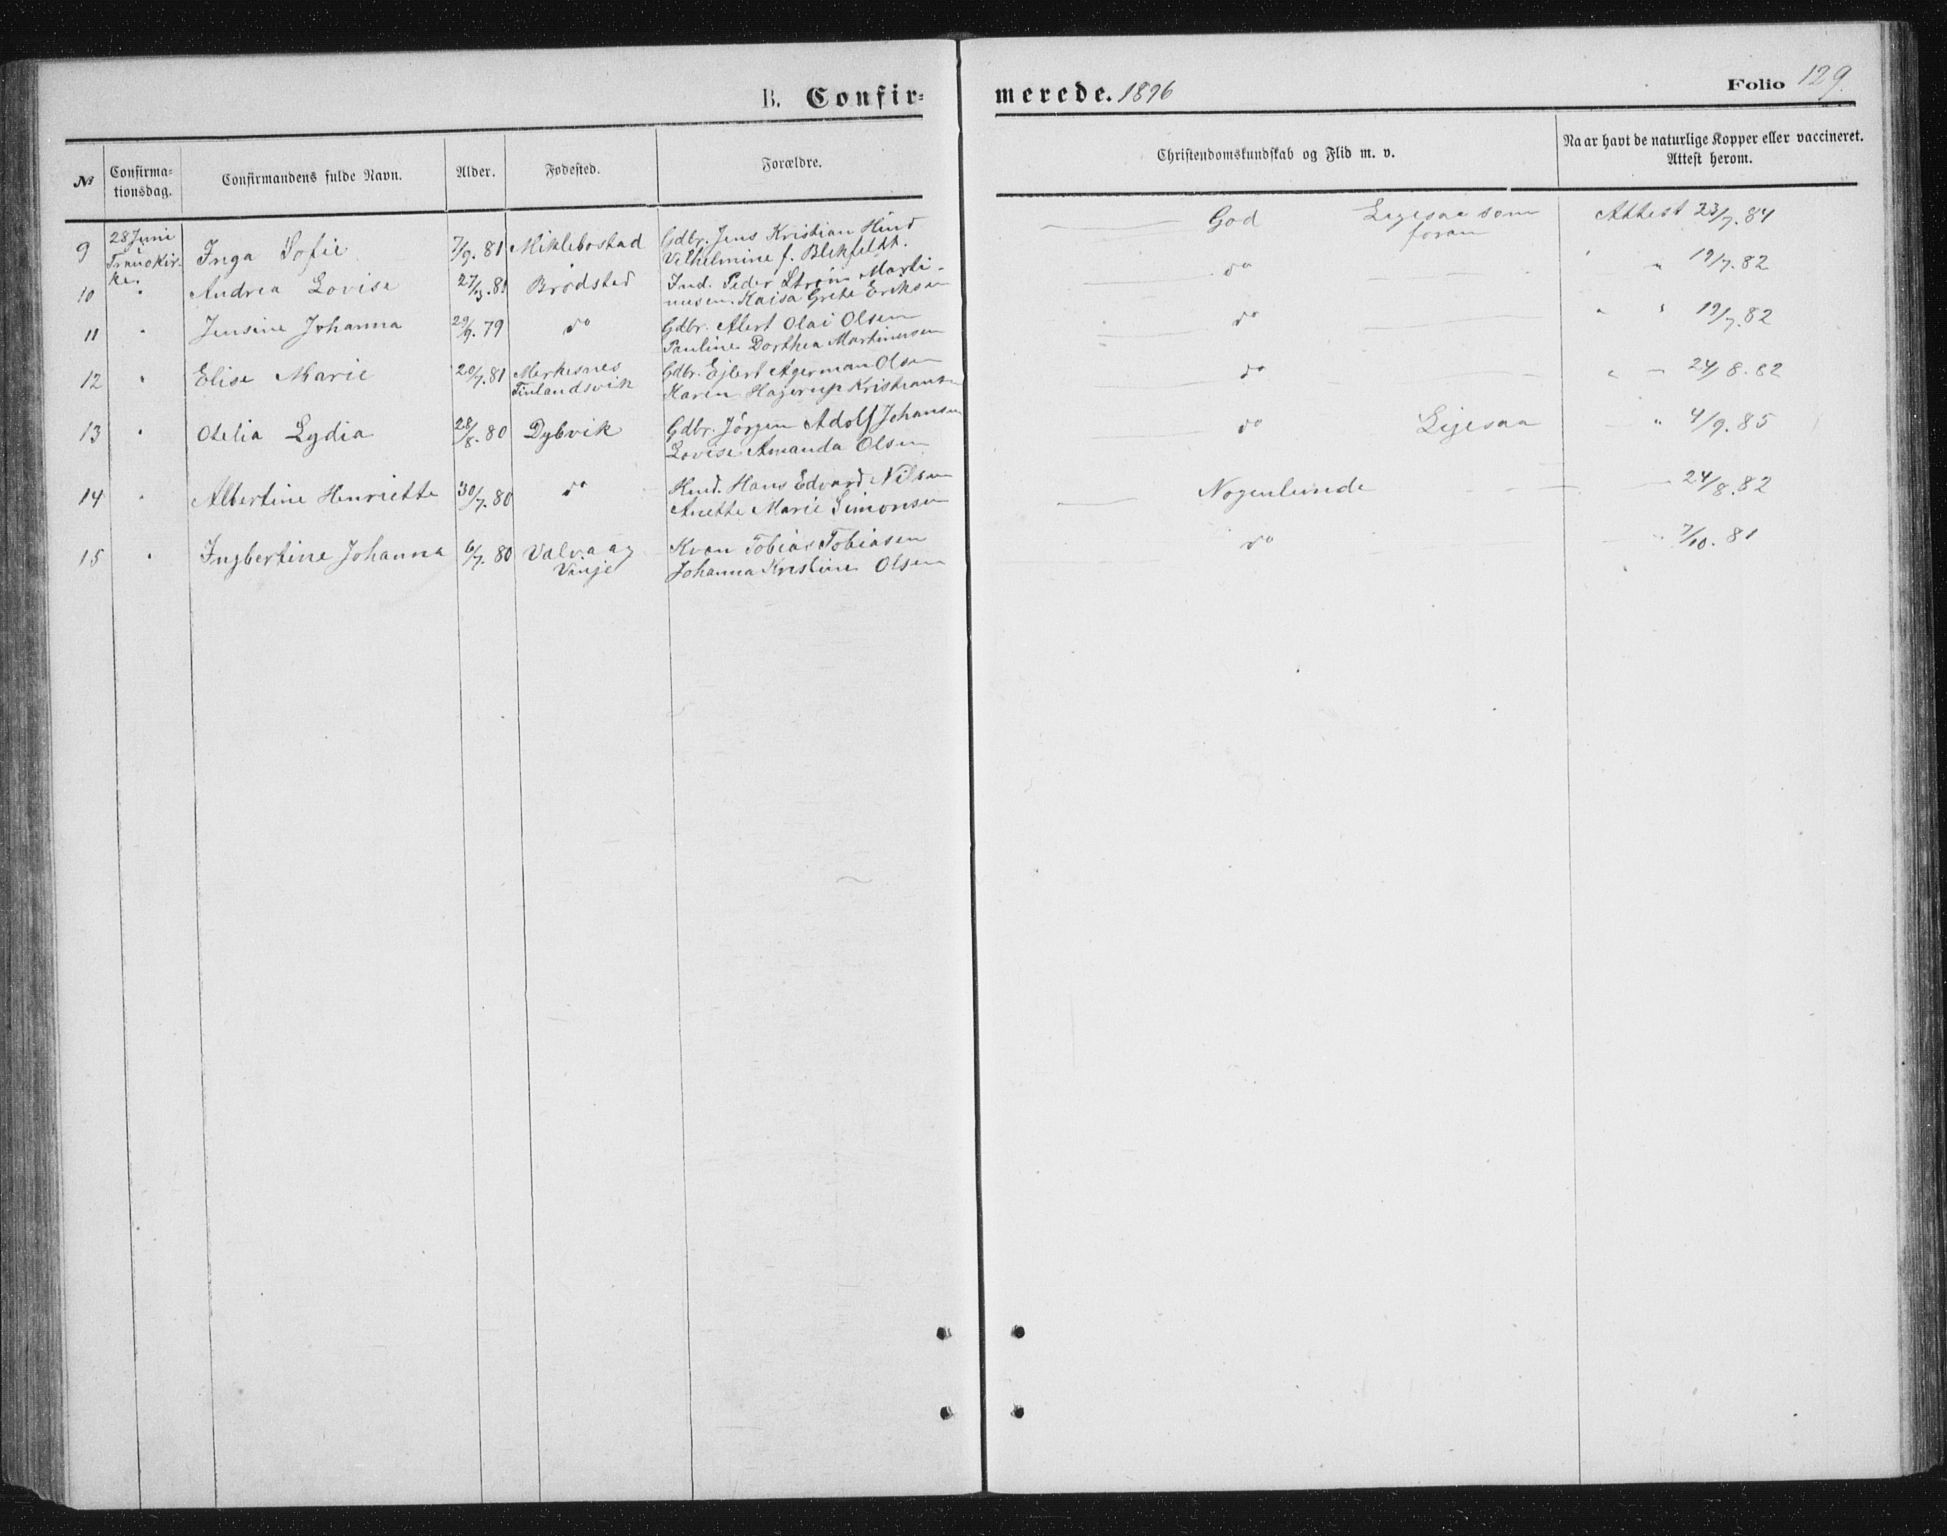 B. Confir=
merede. 1896
Folio 129.
№
Confirma-
tionsdag.
Confirmandens fulde Navn.
Alder.
Fødested.
Forældre.
Christendomskundskab og Flid m. v.
Naar havt de naturlige Kopper eller vaccineret.
Attest herom.
9 28 Juni Inga Sofie 7/9. 81 Miklebostad Gdbr. Jens Kristian Hind God Ligesaa som Attest 23/7. 84
Tranø Kir- Vilhelmine f. Blikfeldt. foran
ke.
10 " Andrea Lovise 27/3. 81 Brødstad Ind. Peder Strøm Marti- do " 19/7. 82
nusen. Kaisa Grete Eriksen
11 " Jensine Johanna 29/9. 79 do Gdbr. Alert Olai Olsen do " " 19/7. 82
Pauline Dorthea Martinusen
12 " Elise Marie 20/7. 81 Merkesnes Gdbr. Ejlert Agerman Olsen do " " 24/8. 82
Finlandsvik Karen Hagerup Kristiansen
13 " Otelia Lydia 28/8. 80 Dybvik Gdbr. Jørgen Adolf Johansen do Ligesaa " 4/9. 85
Lovise Amanda Olsen
14 " Albertine Henriette 30/7. 80 do Hmd. Hans Edvard Nilsen Nogenlunde 24/8. 82
Anette Marie Simonsen
15 " Ingbertine Johanna 6/7. 80 Valvaag Kvan Tobias Tobiasen do " 7/10. 81
Vinje Johanna Kristine Olsen